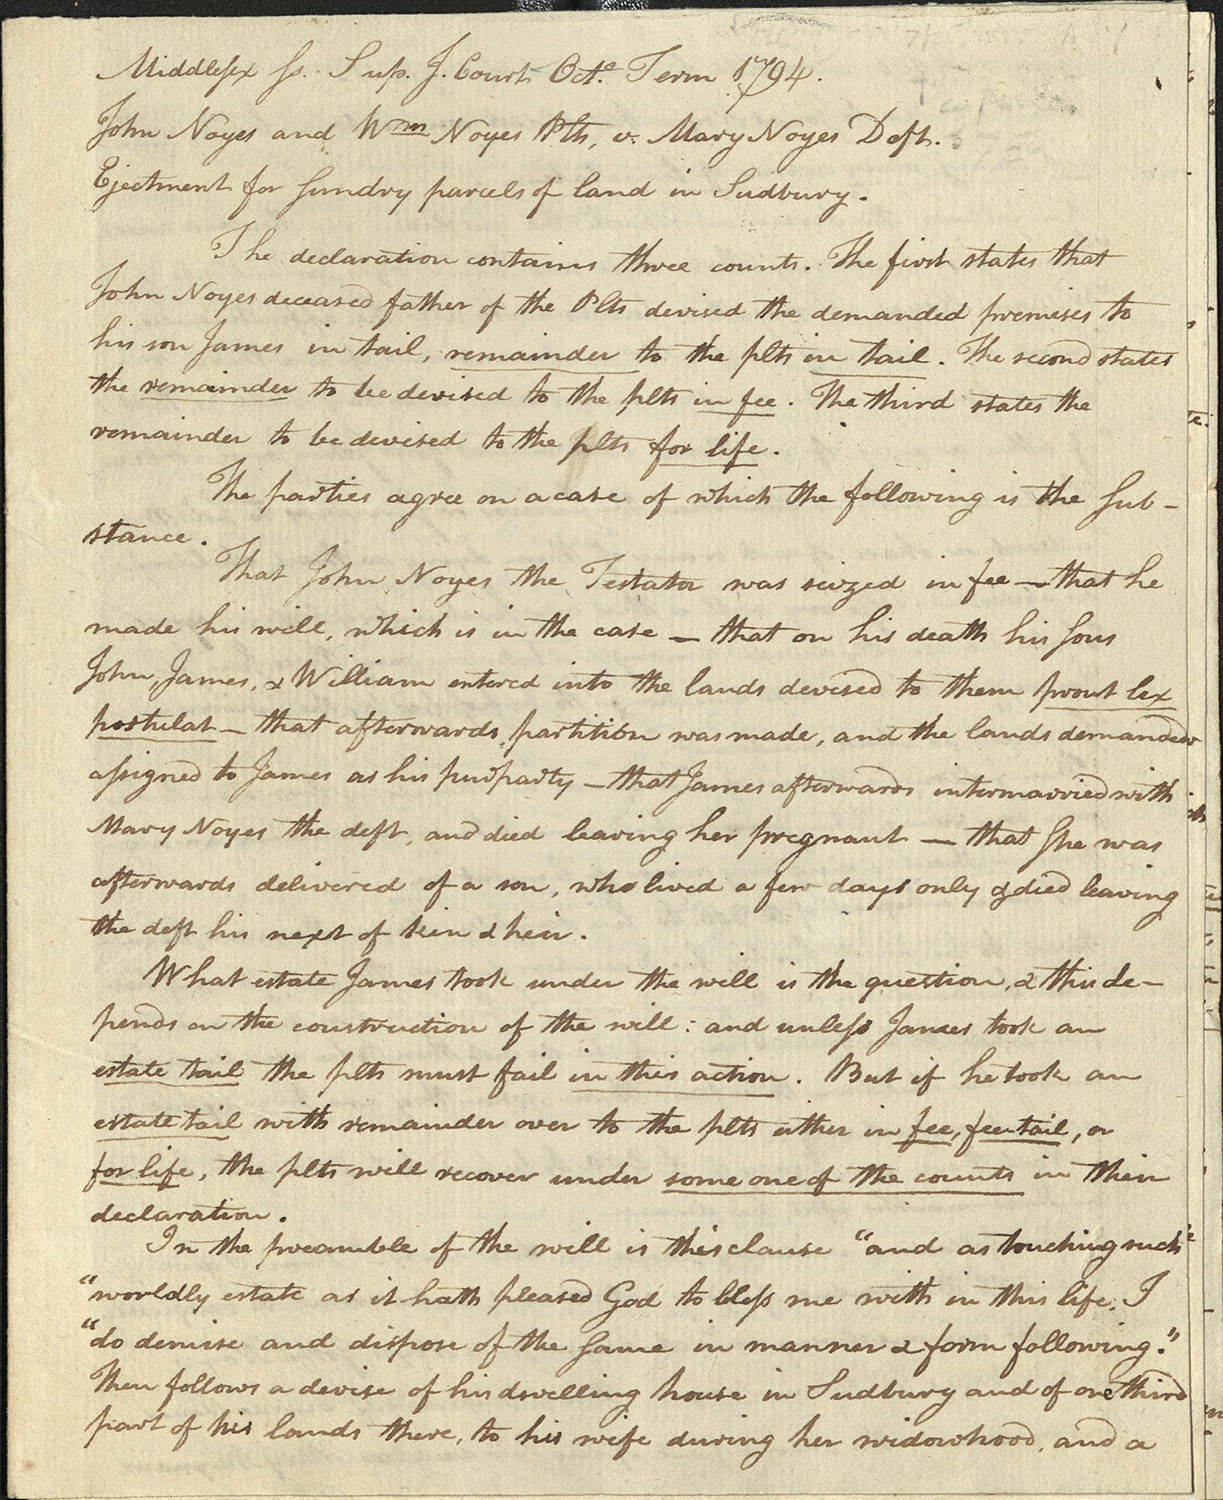 Middlesex ss. Sup. J. Court Octo. Term 1794.
John Noyes and Wm Noyes Plts, v. Mary Noyes Deft.
Ejectment for sundry parcels of land in Sudbury.
The declaration contains three counts. The first states that
John Noyes deceased father of the Plts devised the demanded premises to
his son James in tail, remainder to the plts in tail. The second states
the remainder to be devised to the plts in fee. The third states the
remainder to be devised to the plts for life.
The parties agree on a case of which the following is the sub-
stance.
That John Noyes the Testator was seized in fee — that he
made his will, which is in the case — that on his death his sons
John, James, & William entered into the lands devised to them prout lex
postulat — that afterwards partition was made, and the lands demanded
assigned to James as his purparty — that James afterwards intermarried with
Mary Noyes the deft, and died leaving her pregnant — that she was
afterwards delivered of a son, who lived a few days only & died leaving
the deft his next of kin & heir.
What estate James took under the will is the question, & this de-
pends on the construction of the will: and unless James took an
estate tail the plts must fail in this action. But if he took an
estate tail with remainder over to the plts either in fee, fee tail, or
for life, the plts will recover under some one of the counts in their
declaration.
In the preamble of the will is this clause "and as touching such"
"worldly estate as it hath pleased God to bless me with in this life, I
"do demise and dispose of the same in manner & form following."
Then follows a devise of his dwelling house in Sudbury and of one third
part of his lands there, to his wife during her widowhood, and a